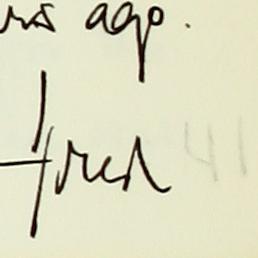 ago.
Fred 41